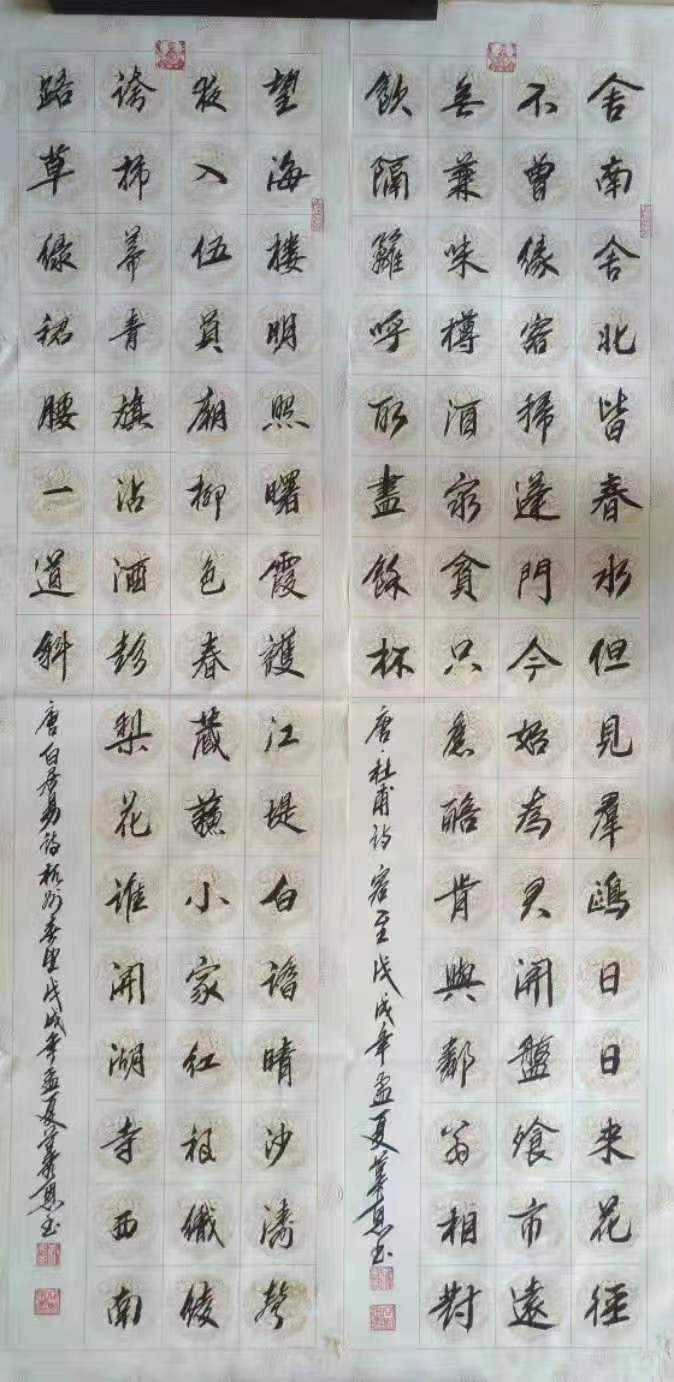 舍南舍北皆春水但見羣鷗日日来花徑
不曾緣客掃蓬門今始為君開盤飧市遠
無兼味樽酒家貧只舊醅肯與鄰翁相對
飲隔籬呼取盡餘杯
唐·杜甫詩 客至 戊戌年孟夏 书
望海樓明照曙霞護江堤白踏晴沙濤聲
夜入伍員廟柳色春藏蘇小家紅袖織綾
誇柿蒂青旗沽酒趁梨花誰開湖寺西南
路草綠裙腰一道斜
唐白居易詩杭州春望戊戌年孟夏 书